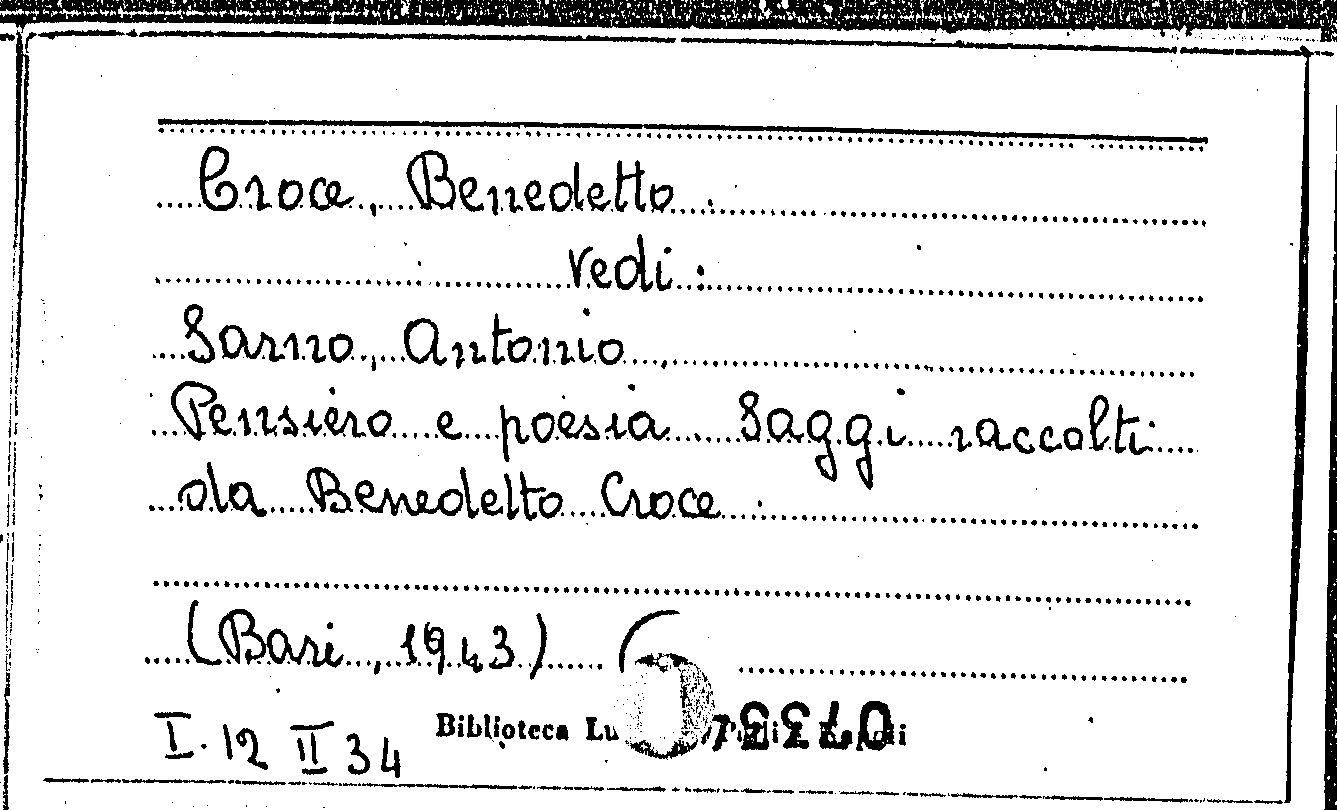 Croce, Benedetto.
Vedi:
Sarno, Antonio
Pensiero e poesia Saggi raccolti
da Benedetto Croce.
(Bari, 1943)
I. 12 II 34
Biblioteca